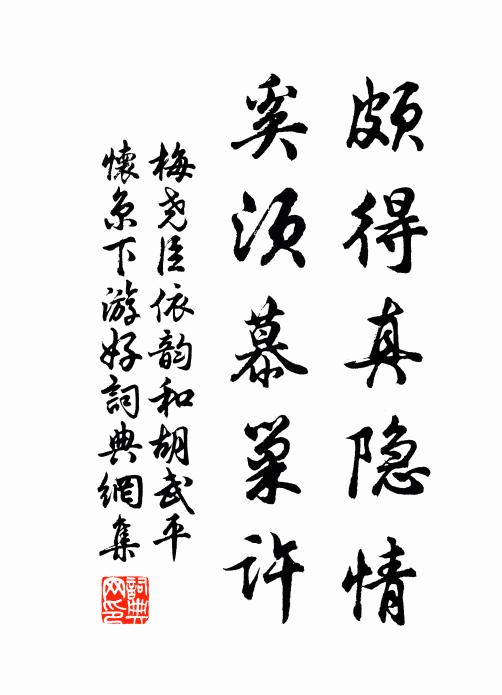 颇得真隐情
奚须慕巢许
梅尧臣依韵和胡武平
懷京下游好詞典網集
詞典网印